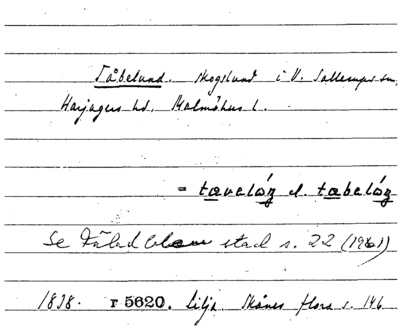 Tåbelund. skogslund i V. Sallerups sn,
Harjagers hd. Malmöhus l.
= tævelóŋ l. tæbelóŋ
Se stad s. 22 (1961)
1838. r 5620. Lilja Skånes flora s. 146